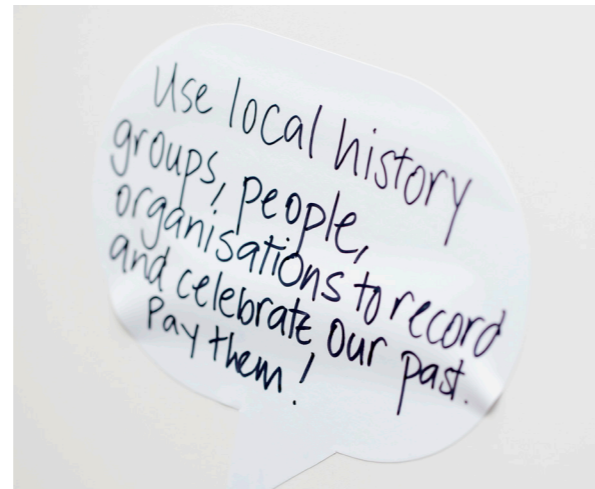 Use local history
groups, people,
organisations to record
and celebrate our past.
Pay them!